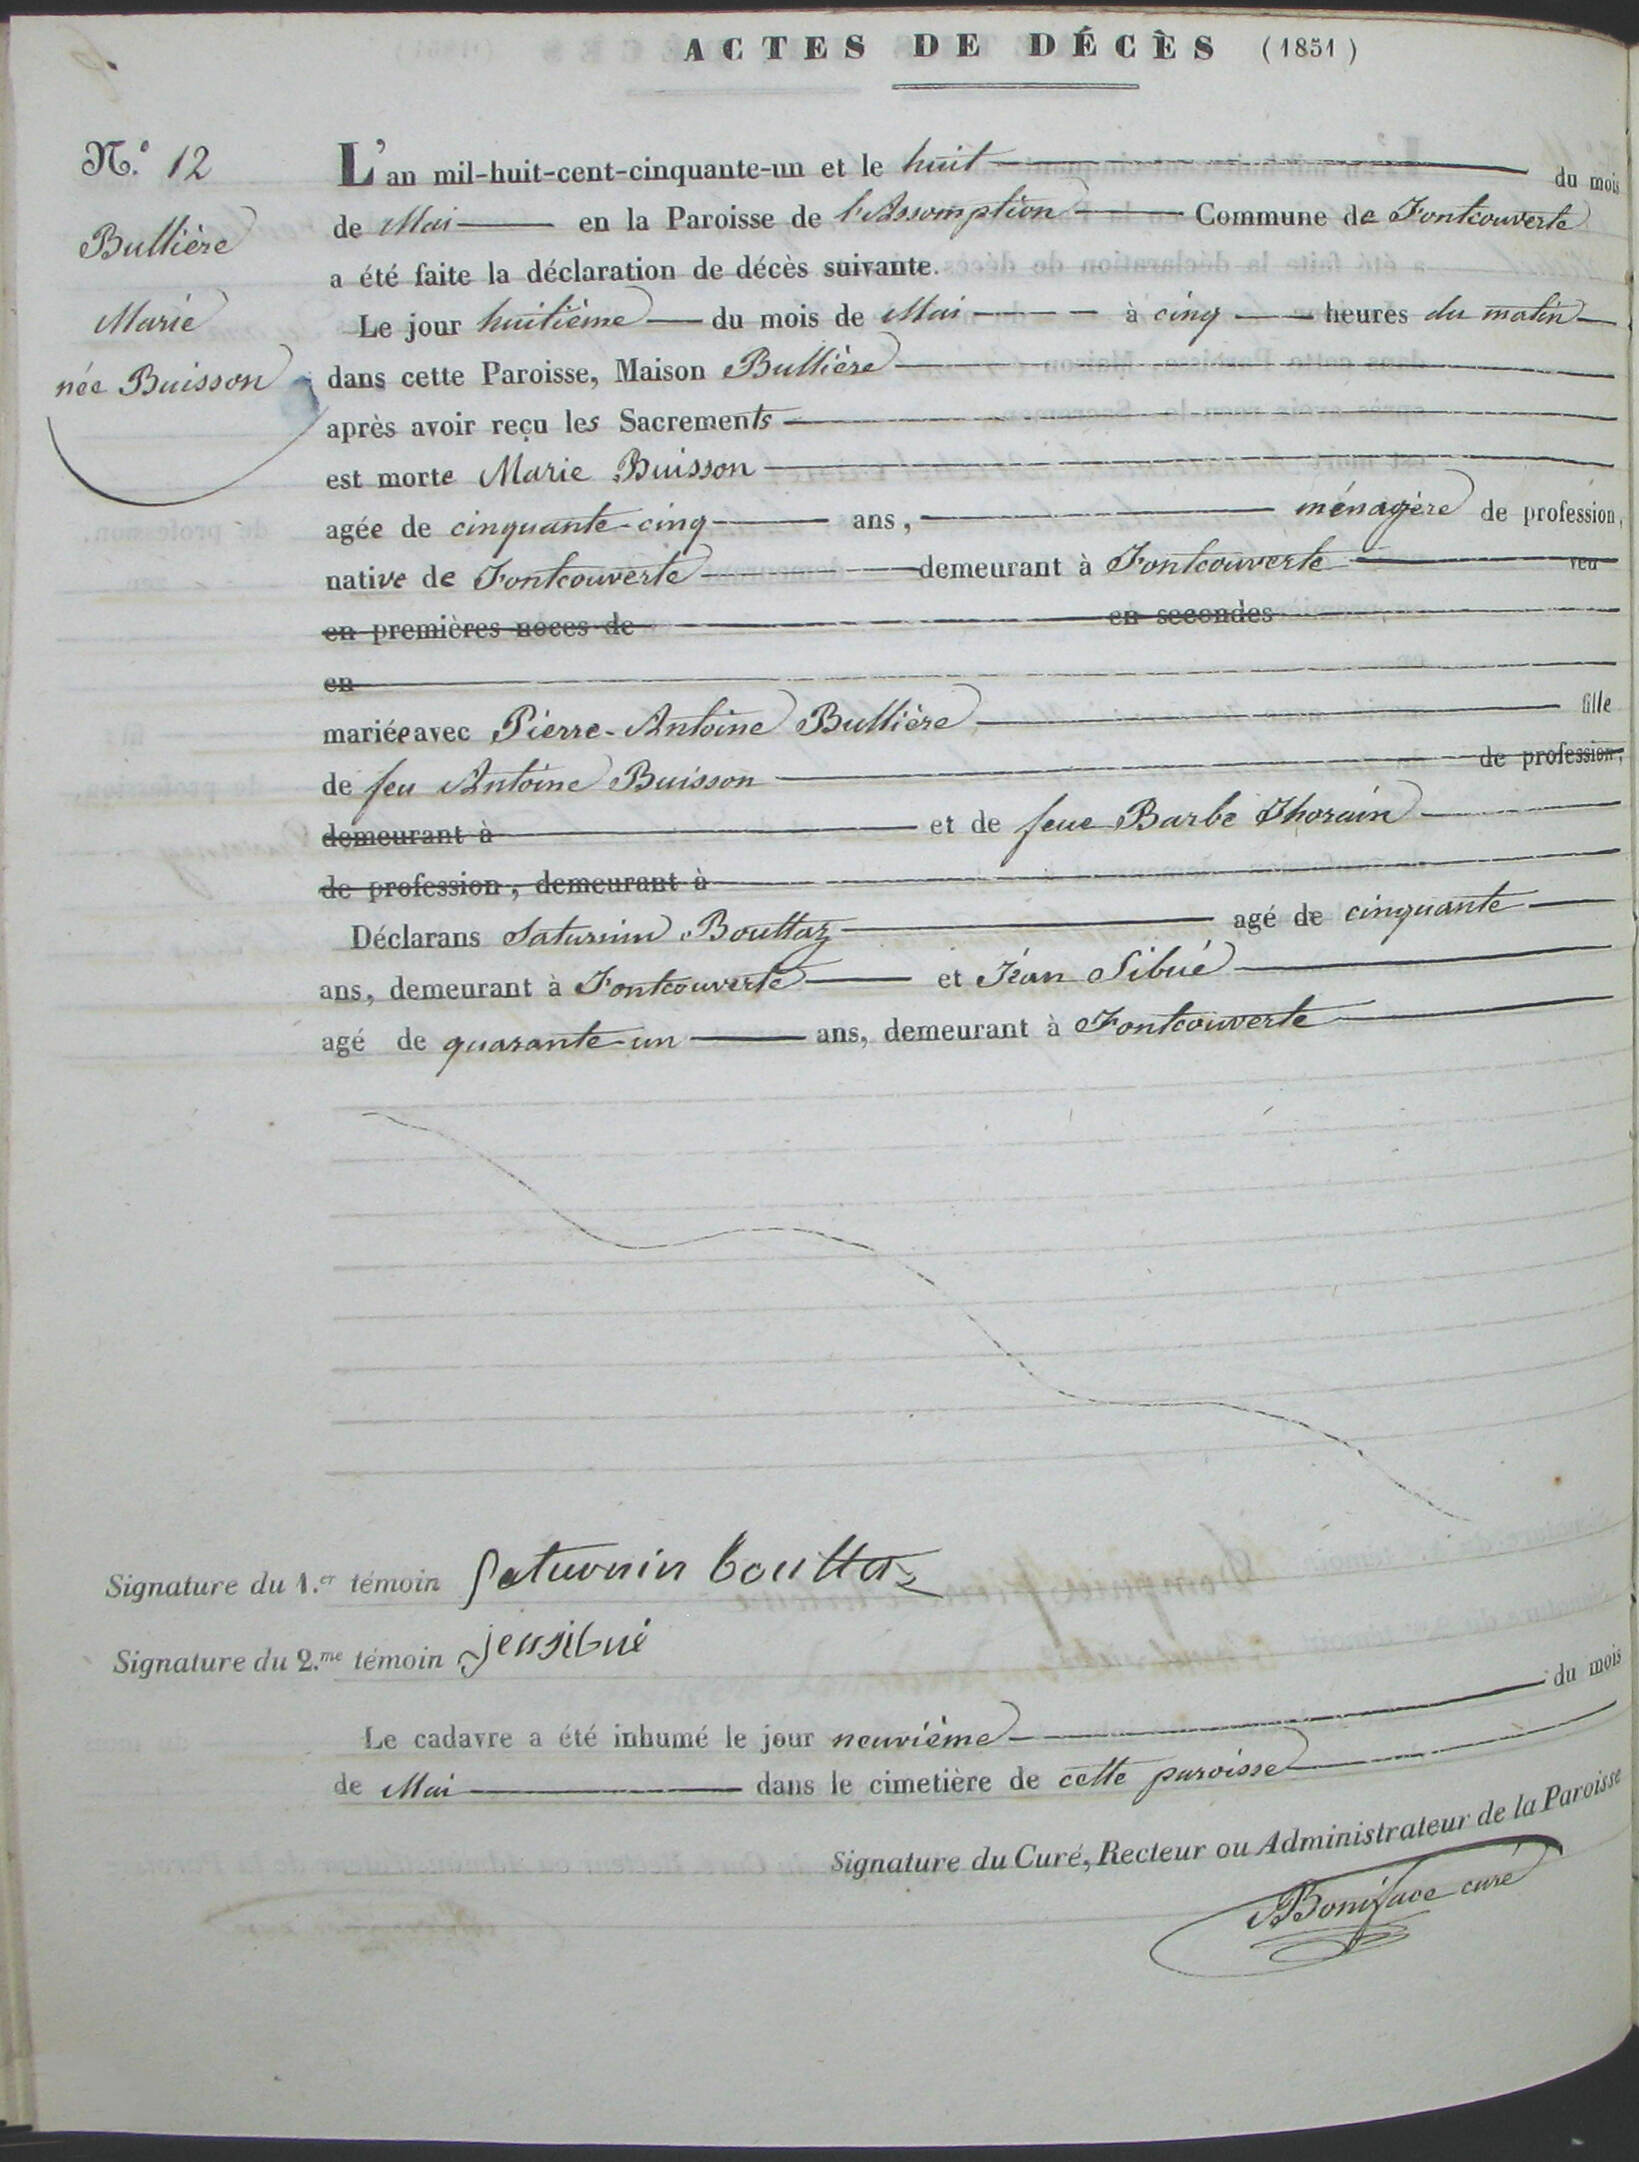 ACTES DE DÉCÈS (1851)
N.° 12
Bullière
Marie
née Buisson
L'an mil-huit-cent-cinquante-un et le huit du mois
de Mai en la Paroisse de l'Assomption Commune de Fontcouverte
a été faite la déclaration de décès suivante.
Le jour huitième du mois de Mai à cinq heures du matin
dans cette Paroisse, Maison Bullière
après avoir reçu les Sacrements
est morte Marie Buisson
agée de cinquante-cinq ans, ménagère de profession,
native de Fontcouverte demeurant à Fontcouverte veu
en premières noces de en secondes
en
mariée avec Pierre-Antoine Bullière fille
de feu Antoine Buisson de profession,
demeurant à et de feue Barbe Thorain
de profession, demeurant à
Déclarans Saturnin Bouttaz agé de cinquante
ans, demeurant à Fontcouverte et Jean Sibué
agé de quarante-un ans, demeurant à Fontcouverte
Signature du 1.er témoin Saturnin bouttaz
Signature du 2.me témoin jensibué
Le cadavre a été inhumé le jour neuvième du mois
de Mai dans le cimetière de cette paroisse
Signature du Curé, Recteur ou Administrateur de la Paroisse
Boniface curé